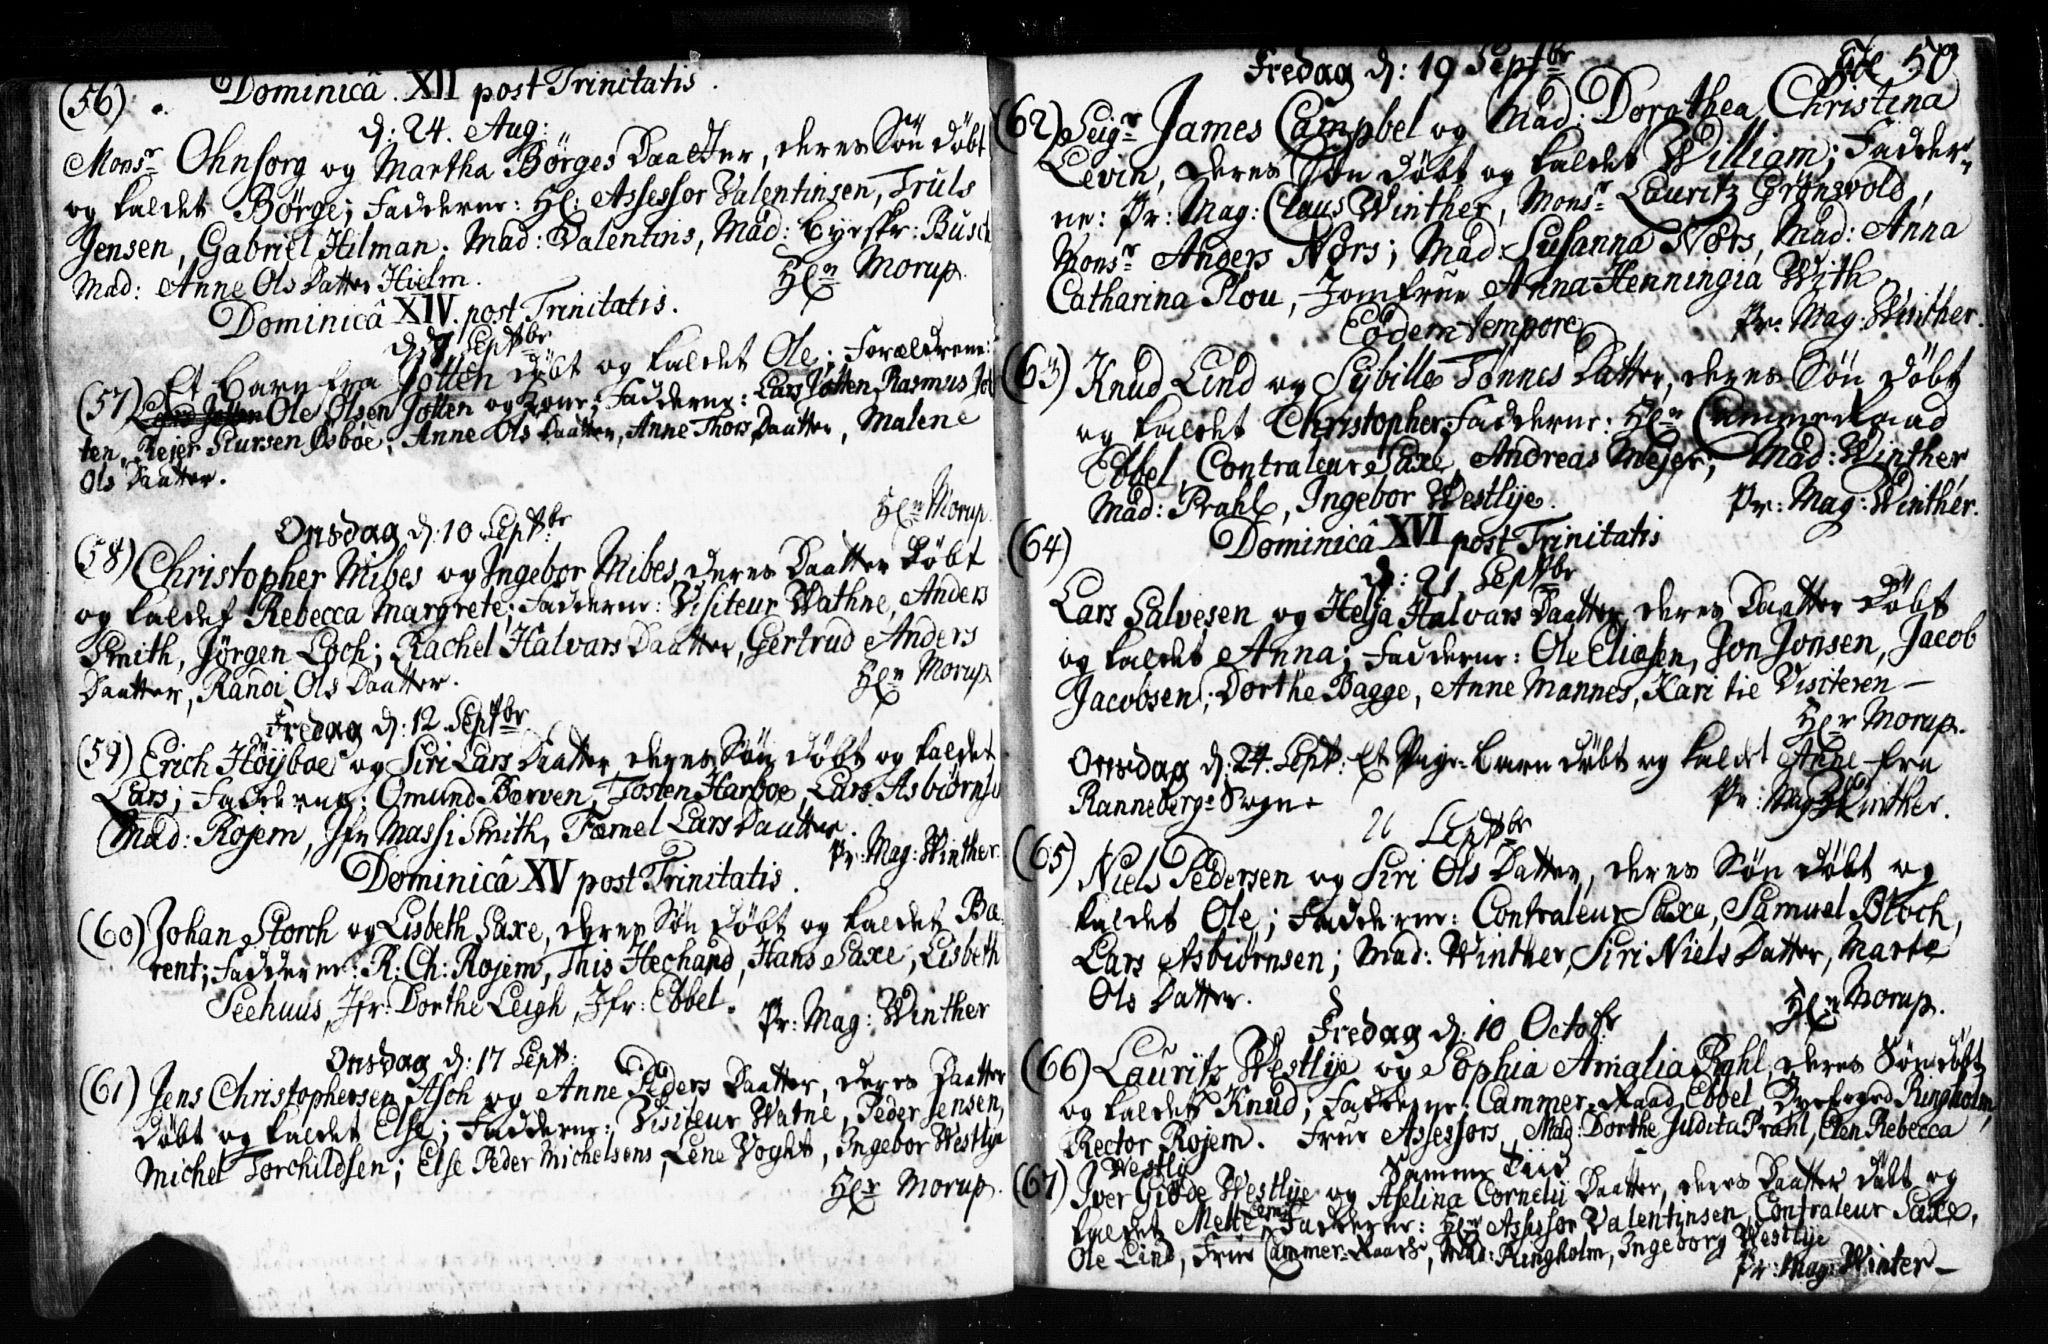 Dominicâ XII post Trinitatis.
(56) d: 24. Aug:
Monsr Ohnsorg og Martha Börges Daatter, deres Sön döbt
og kaldet Börge; Fadderne: Hl: Assessor Valentinsen, Truls
Jensen, Gabriel Hilman. Mad: Valentins, Mad: Byeskr: Busch
Mad: Anne Ols Datter Hielm. Hlr Morup.
Dominicâ XIV. post Trinitatis.
d: 7 Septbr
Et barn fra Jotten döbt og kaldet Ole; Forældrene:
(57) Ole Olsen Jotten og Kone; Fadderne: Lars Jotten, Rasmus Jot
ten, Reier Osböe; Anne Ols Daatter, Anne Thors Daatter, Malene
Ols Daatter.
Hlr Morup.
Onsdag d: 10 Septbr
(58) Christopher Mibes og Ingebor Mibes deres Daatter Döbt
og kaldet Rebecca Margrete; Fadderne: Visiteur Wathne, Anders
Smith, Jörgen Loch; Rachel Halvars Daatter, Gertrud Anders
Daatter, Randi Ols Daatter. Hlr Morup
Fredag d: 12 Septbr
(59) Erich Höijboe og Siri Lars Daatter deres Sön döbt og kaldet
Lars; Fadderne: Omund Barven, Tosten Harboe, Lars Asbiörnse
Mad: Rojem, Jfr Massi Smith, Lars Daatter.
Pr: Mag: Winther.
Dominicâ XV post Trinitatis.
(60) Johan Storch og Lisbeth Saxe, deres Sön Döbt og kaldet Ba
rent; Fadderne: R: Ch: Rojem, This Hechand, Hans Saxe; Lisbeth
Seehuus, Jfr: Dorthe Leigh, Jfr: Ebbel.
Pr: Mag: Winther
Onsdag d: 17 Sept:
(61) Jens Christophersen Asch og Anne Peders Daatter, deres Daatter
döbt og kaldet Else; Fadderne: Visiteur Watne, Peder Jensen,
Michel Torchildsen; Else Peder Michelsens, Lene Voght, Ingebor Westlye
Hlr Morup.
50
Fredag d: 19 Septbr
(62) Seigr James Campbel og Mad: Dorothea Christina
Levin, deres Sön döbt og kaldet William; Fadder
ne: Pr: Mag: Claus Winther, Monsr Lauritz Grönsvold,
Monsr Anders Nörs; Mad: Susanna Nörs, Mad: Anna
Catharina Plou, Jomfrue Anna Henningia With
Pr: Mag: Winther.
Eodem tempore
(63) Knud Lind og Sybille Tönnes Datter, deres Sön döbt
og kaldet Christopher, Fadderne: Hlr Cammerraad
Ebbel, Contraleur Saxe, Andreas Mejer; Mad: Winther
Mad: Prahl, Ingebor Westlije. Pr: Mag: Winther.
(64) Dominicâ XVI post Trinitatis
d: 21 Septbr
Lars Salvesen og Helja Halvars Daatter, deres Daatter Döbt
og kaldet Anna; Fadderne: Ole Eliasen, Jon Jonsen, Jacob
Jacobsen; Dorthe Bagge, Anne Mannes, Kari tie Visiteren —
Hlr Morup.
Onsdag d: 24. Sept: Et Pige-barn döbt og kaldet Anne fra
Ranneberg-Sogne Pr: Mag: Winther.
Septbr
(65) Niels Pedersen og Siri Ols Datter, deres Sön döbt og
kaldet Ole; Fadderne: Contraleur Saxe, Samuel Bloch,
Lars Asbiörnsen; Mad: Winther, Siri Niels Datter, Marte
Ols Datter. Hlr Morup.
Fredag d: 10 Octobr
(66) Lauritz Westlije og Sophia Amalia Prahl, deres Sön döbt
og kaldet Knud; Fadderne: Cammer-Raad Ebbel, Ringholm,
Rector Rojem. Frue Assessors, Mad: Dorthe Judita Prahl, Elen Rebecca
Westly Samme Tiid
(67) Iver Giöde Westlye og Aselina Cornelii Daatter, deres Daatter döbt og
kaldet Mette; Fadderne: Hlr Assessor Valentinsen, Contraleur Saxe,
Ole Lind, Frue Cammer-Raads, Mad: Ringholm, Ingeborg Westlye
Pr: Mag: Winter —